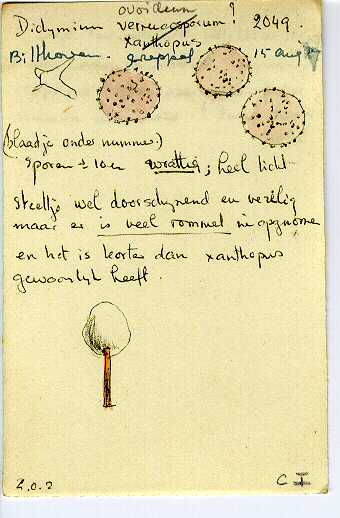 ovoideum
Didymium verrucosporum? 2049.
xanthopus
Bilthoven. greppel 15 aug
(blaadje onder nummer.)
Sporen ± 10 wrattig; heel licht
Steeltje wel doorschijnend en vezelig
maar er is veel rommel in opgenomen
en het is korter dan xanthopus
gewoonlijk heeft.
2.0.2 C I